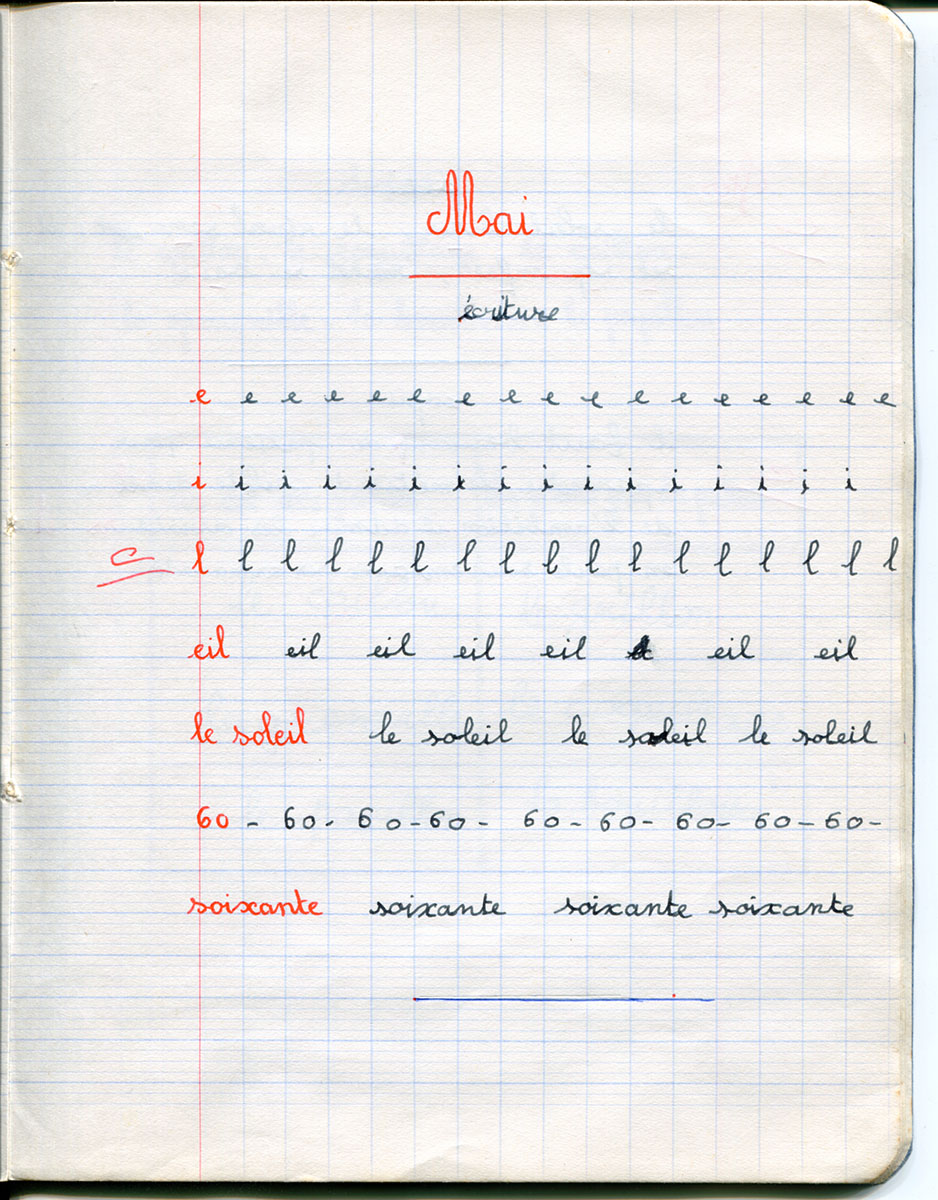 Mai
écriture
e e e e e e e e e e e e e e e e e
i i i i i i i i i i i i i i i i
C l l l l l l l l l l l l l l l l l
eil eil eil eil eil eil eil
le soleil le soleil le soleil le soleil
60 - 60 - 60 - 60 - 60 - 60 - 60 - 60 - 60 -
soixante soixante soixante soixante